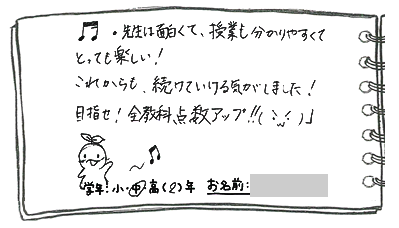 ・先生は面白くて、授業も分かりやすくて
とっても楽しい!
これからも、続けていける気がしました!
目指せ!全教科点数アップ!!(
学年:小・中・高(2)年 お名前: